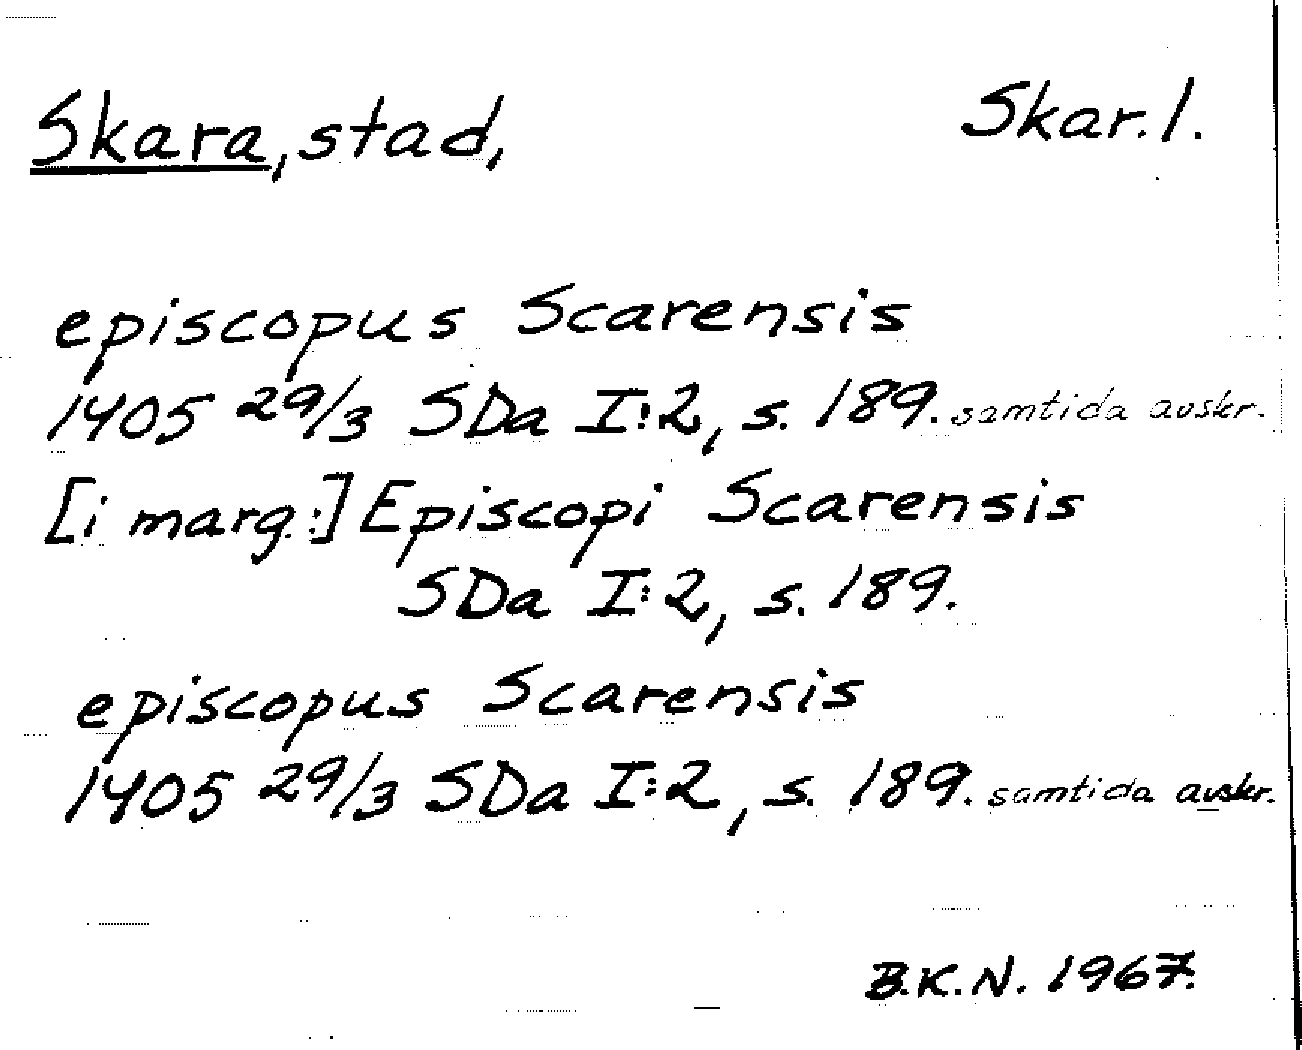 Skara, stad, Skar. l.
episcopus Scarensis
1405 29/3 SDa I:2, s. 189. samtida avskr.
[i marg.:] Episcopi Scarensis
SDa I:2, s. 189.
episcopus Scarensis
1405 29/3 SDa I:2, s. 189. samtida avskr.
B.K.N. 1967.